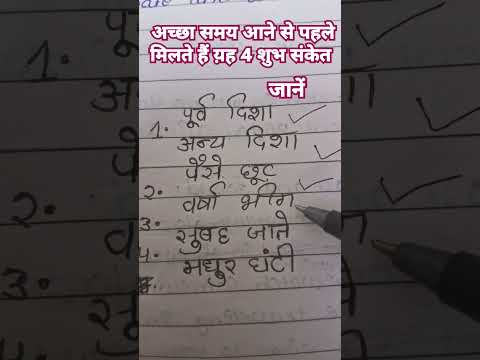 अच्छा समय आने से पहले
मिलते हैं य़ह 4 शुभ संकेत
जानें
पूर्व दिशा
1. अन्य दिशा
पैसे छूट
2. वर्षा भीग
3. सुबह जाते
4. मधुर घंटी